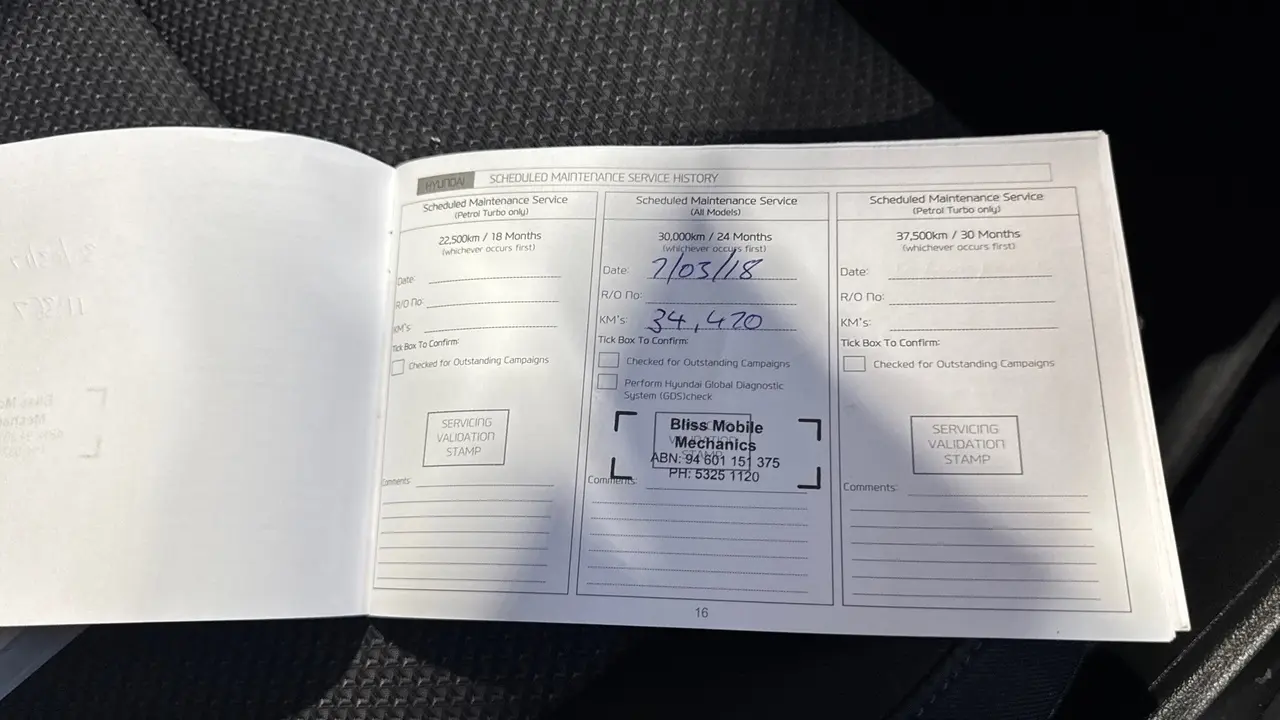 HYUNDAI SCHEDULED MAINTENANCE SERVICE HISTORY
Scheduled Maintenance Service
(Petrol Turbo only)
22,500km / 18 Months
(whichever occurs first)
Date:
R/O No:
KM's:
Tick Box To Confirm:
Checked for Outstanding Campaigns
SERVICING
VALIDATION
STAMP
Comments:
Scheduled Maintenance Service
(All Models)
30,000km / 24 Months
(whichever occurs first)
Date: 7/03/18
R/O No:
KM's: 34,420
Tick Box To Confirm:
Checked for Outstanding Campaigns
Perform Hyundai Global Diagnostic
System (GDS)check
Bliss Mobile
Mechanics
ABN: 94 601 151 375
PH: 5325 1120
Comments:
Scheduled Maintenance Service
(Petrol Turbo only)
37,500km / 30 Months
(whichever occurs first)
Date:
R/O No:
KM's:
Tick Box To Confirm:
Checked for Outstanding Campaigns
SERVICING
VALIDATION
STAMP
Comments:
16